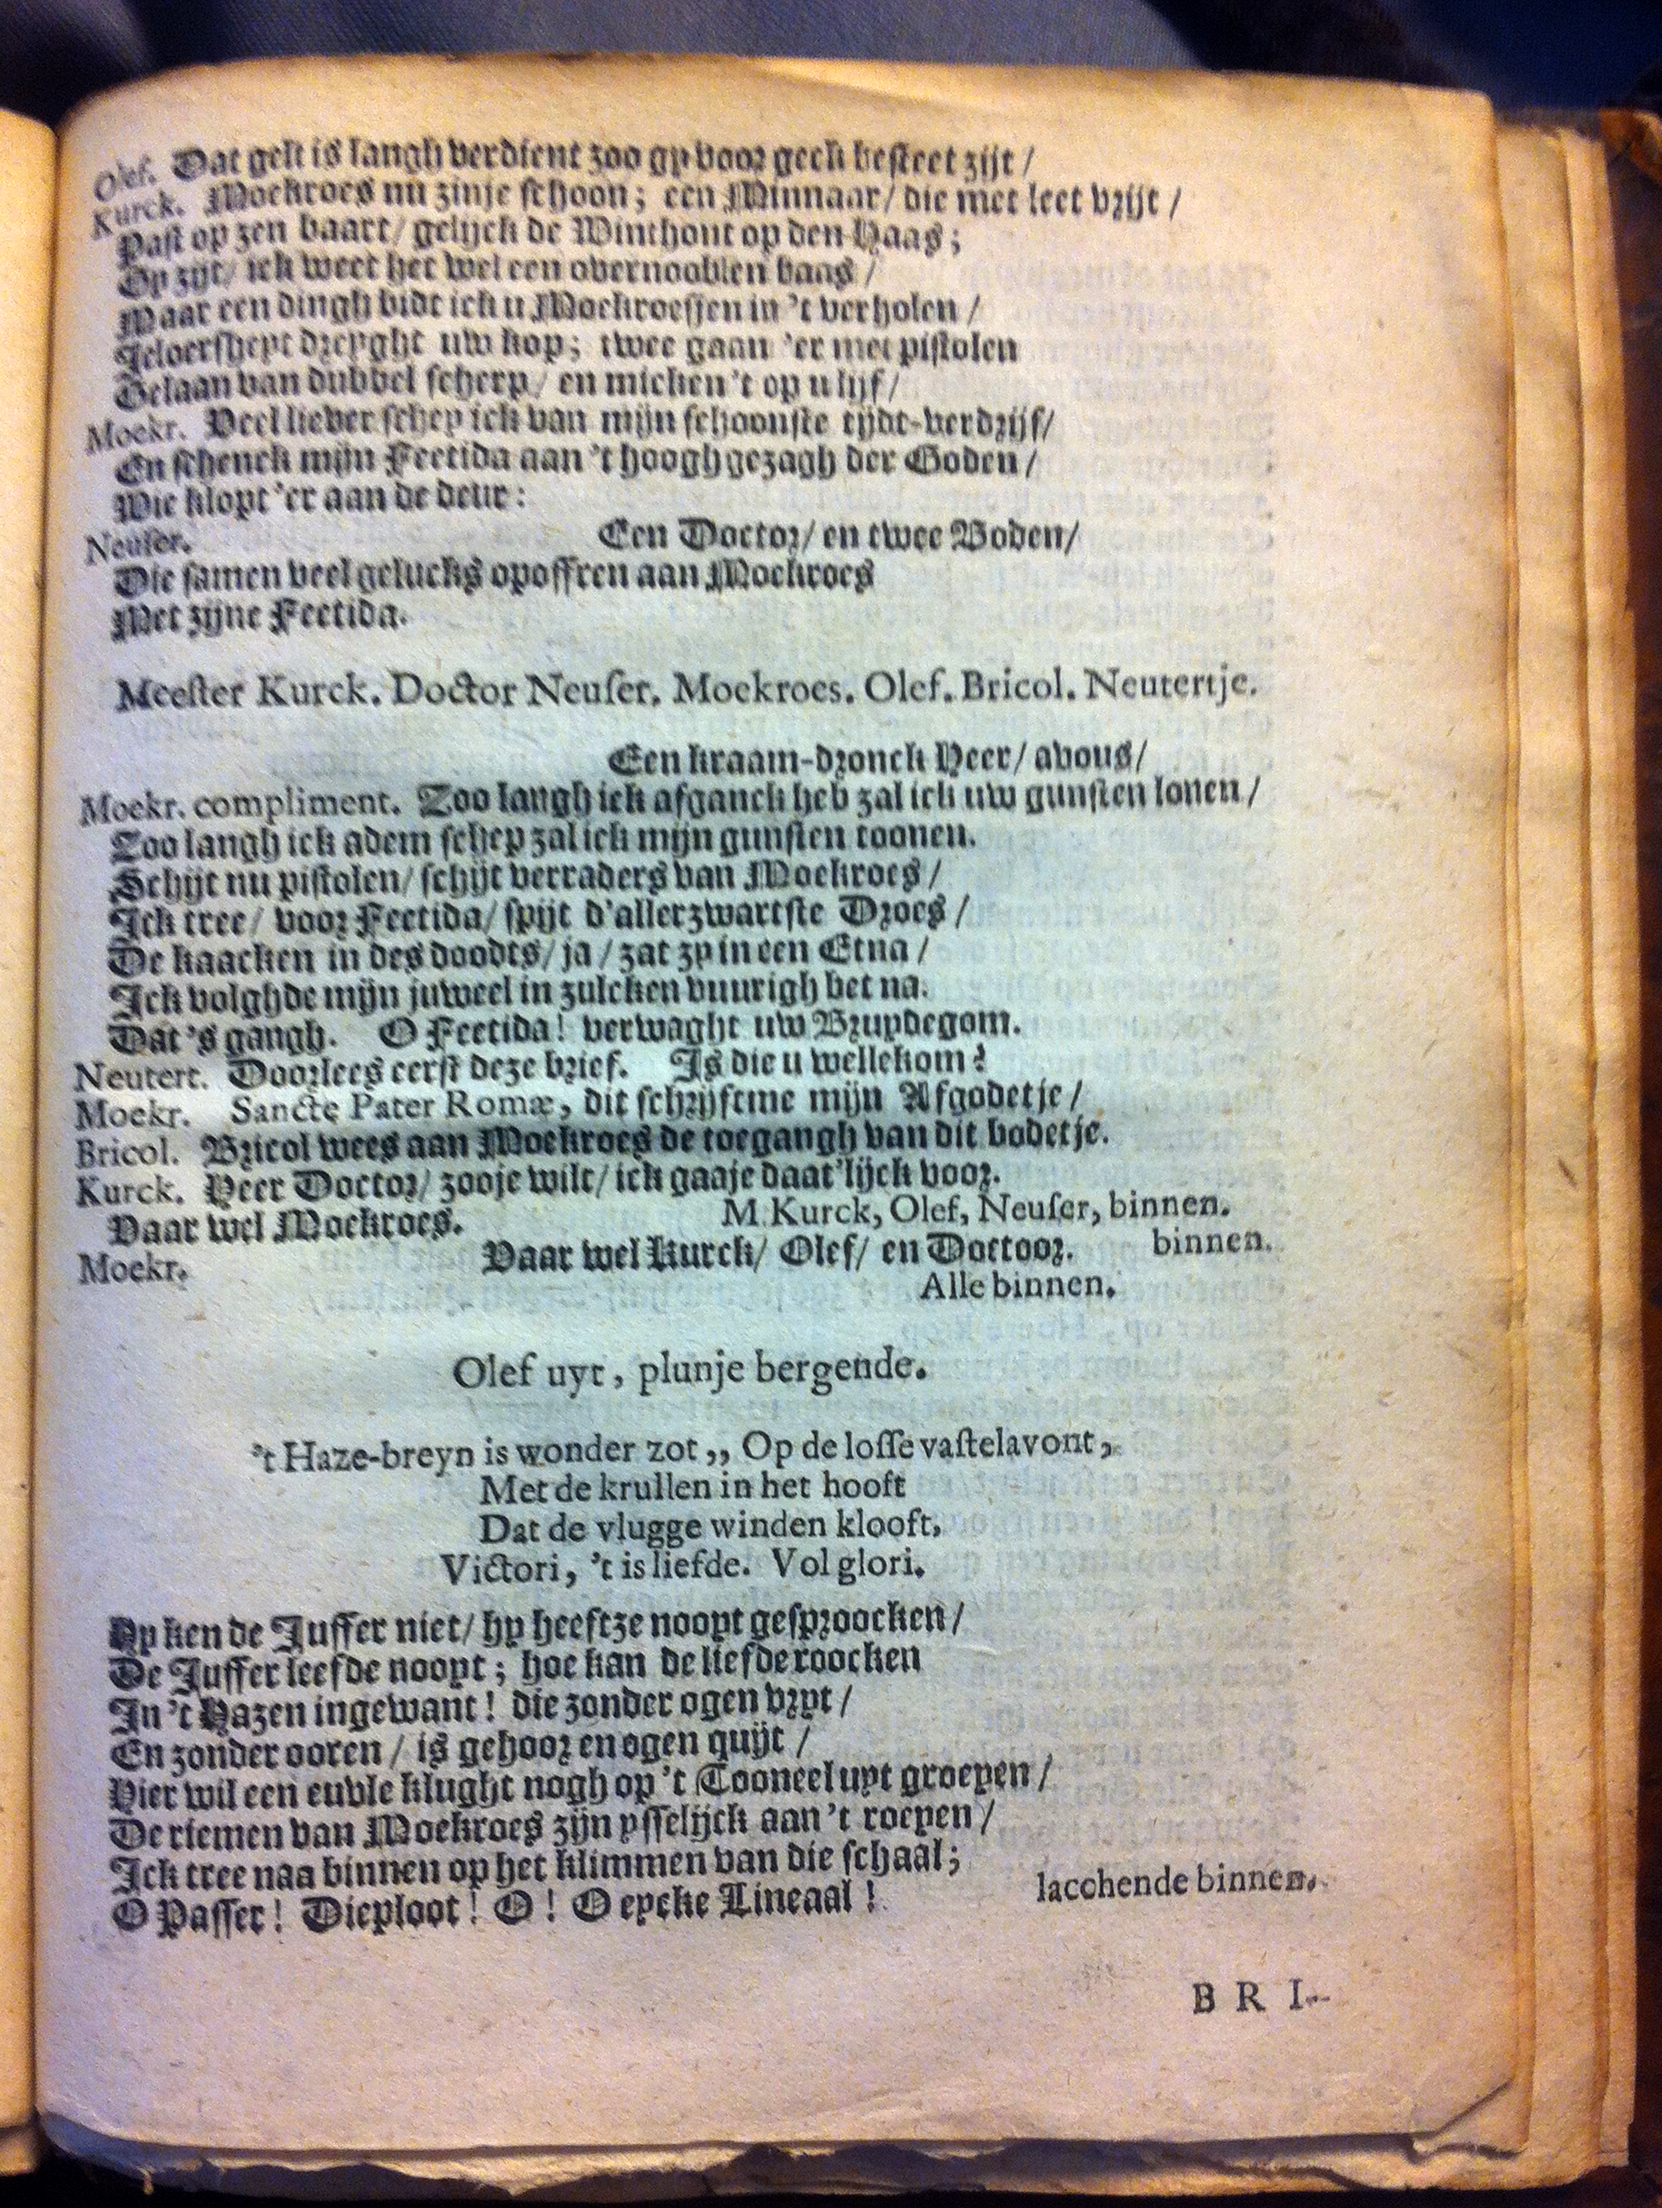 Olef. Dat gelt is langh verdient zoo gy voor geck besteet zijt /
Kurck. Moekroes nu zinje schoon; een Minnaar / die met leet vrijt /
Past op zen vaart / gelijck de Winthont op den Haas;
Op zijt / ick weet het wel een overnooblen baas /
Maar een dingh bidt ick u Moekroessen in 't verholen /
Jeloersheyt dreyght uw kop; twee gaan 'er met pistolen
Gelaan van dubbel scherp / en micken 't op u lijf /
Moekr. Veel liever schep ick van mijn schoonste tijdt-verdrijf /
En schenck mijn Feetida aan 't hoogh gezagh der Goden /
Wie klopt 'er aan de deur:
Neuser. Een Doctor / en twee Boden /
Die samen veel gelucks opoffren aan Moekroes
Met zijne Feetida.
Meester Kurck. Doctor Neuser. Moekroes. Olef. Bricol. Neutertje.
Een kraam-dronck Heer / avous /
Moekr. compliment. Zoo langh ick afganck heb zal ick uw gunsten lonen /
Zoo langh ick adem schep zal ick mijn gunsten toonen.
Schijt nu pistolen / schijt verraders van Moekroes /
Ick tree / voor Feetida / spijt d'allerzwartste Droes /
De kaacken in des doodts / ja / zat zy in een Etna /
Ick volghde mijn juweel in zulcken vuurigh bet na.
Dat 's gangh. O Feetida! verwaght uw Bruydegom.
Neutert. Doorlees eerst deze brief. Is die u wellekom?
Moekr. Sancte Pater Romæ, dit schrijftme mijn Afgodetje /
Bricol. Bricol wees aan Moekroes de toegangh van dit bodetje.
Kurck. Heer Doctor / zooje wilt / ick gaaje daat'lijck voor.
Vaar wel Moekroes. M. Kurck, Olef, Neuser, binnen.
Moekr. Vaar wel Kurck / Olef / en Doctoor. binnen.
Alle binnen.
Olef uyt, plunje bergende.
't Haze-breyn is wonder zot,, Op de losse vastelavont,
Met de krullen in het hooft
Dat de vlugge winden klooft,
Victori, 't is liefde. Vol glori.
Hy ken de Juffer niet / hy heeftze nooyt gesproocken /
De Juffer leefde nooyt; hoe kan de liefde roocken
In 't Hazen ingewant! die zonder ogen vryt /
En zonder ooren / is gehoor en ogen quijt /
Hier wil een euvle klught nogh op 't Tooneel uyt groeyen /
De riemen van Moekroes zijn ysselijck aan 't roeyen /
Ick tree naa binnen op het klimmen van die schaal;
O Passer! Dieploot! O! O eycke Lineaal! lacchende binnen.
B R I-